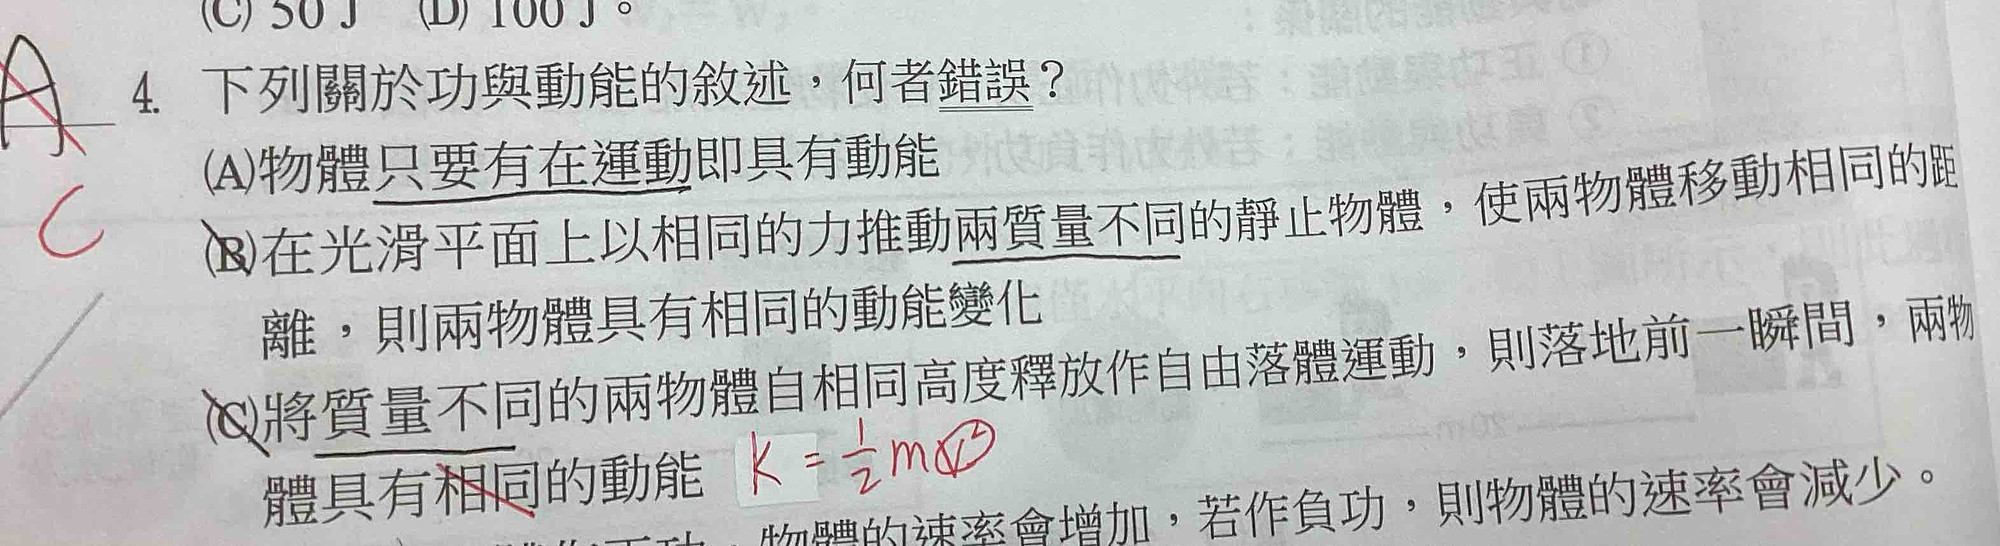 (C) 50 J (D) 100 J。
A 4. 下列關於功與動能的敘述，何者錯誤？
(A)物體只要有在運動即具有動能
C
(B)在光滑平面上以相同的力推動兩質量不同的靜止物體，使兩物體移動相同的距
離，則兩物體具有相同的動能變化
(C)將質量不同的兩物體自相同高度釋放作自由落體運動，則落地前一瞬間，兩物
體具有相同的動能 K = 1/2 mv²
正功，物體的速率會增加，若作負功，則物體的速率會減少。